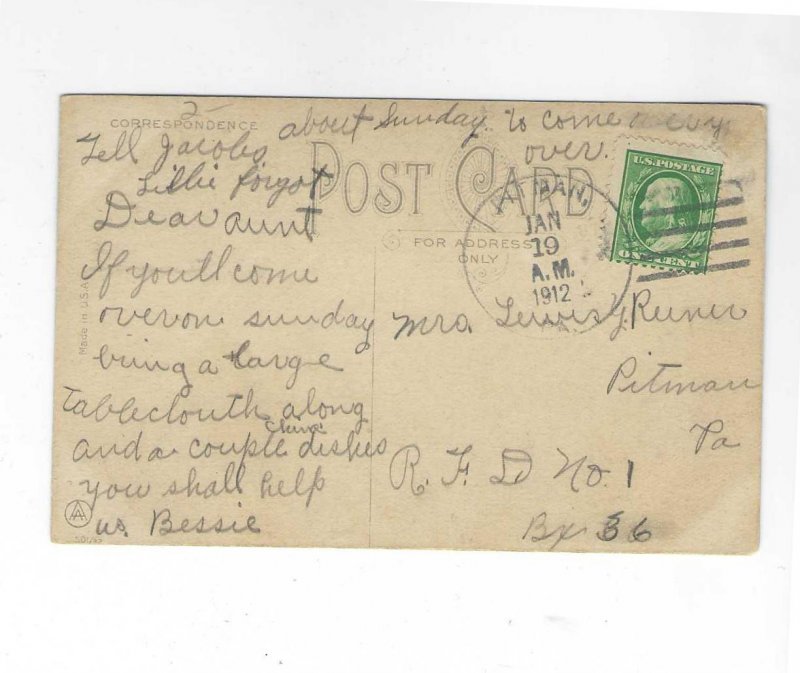 2
CORRESPONDENCE
about Sunday to come
over.
Tell Jacobs
Lillie forgot
Dear aunt
If you'll come
over on sunday
bring a large
tableclouth along
China
and a couple dishes
you shall help
us. Bessie
POST CARD
FOR ADDRESS
ONLY
JAN
19
A.M.
1912
U.S. POSTAGE
ONE CENT
Mrs. Lewis Reiner
Pitman
Pa
R. F. D No. 1
Bx 36
Made in U.S.A.
AA